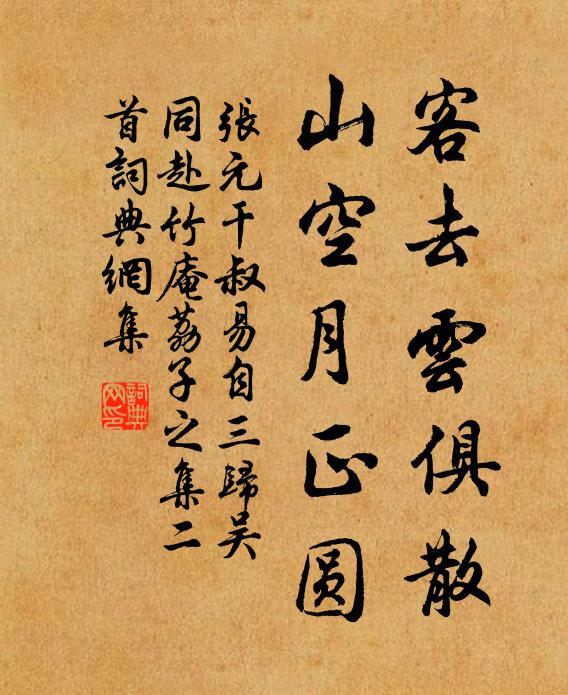 客去雲俱散
山空月正圓
張元干叔易自三歸吴
同赴竹庵荔子之集二
首詞典網集
詞典
网印